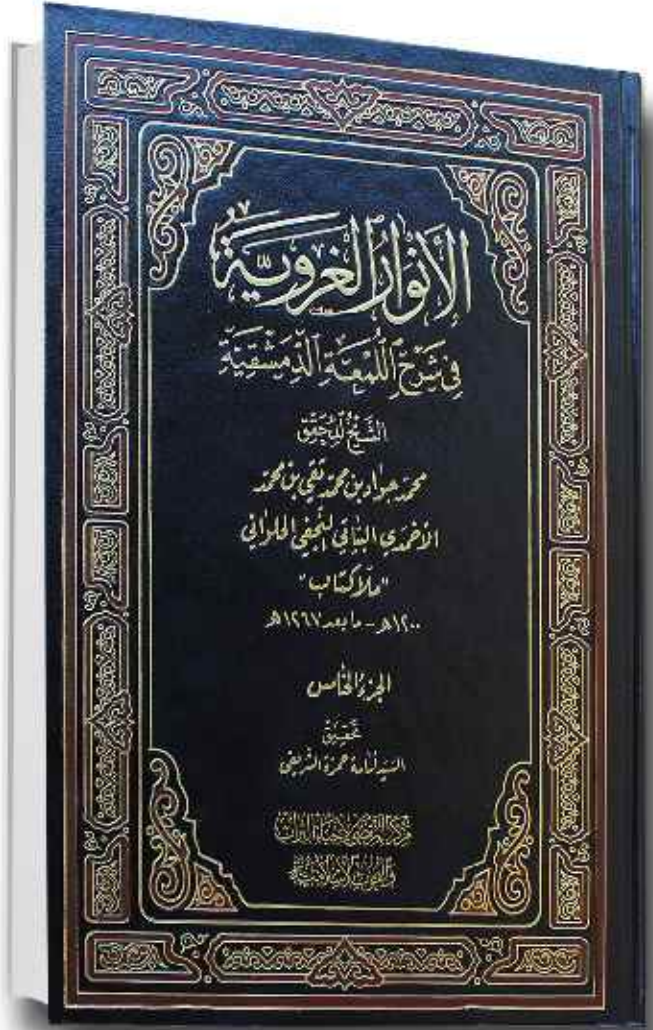 الأنوار الغروية
في شرح اللمعة الدمشقية
الشيخ المحقق
محمد جواد بن محمد تقي بن محمد
الأحمدي البياتي النجفي الحلواني
"ملا كتاب"
١٢٠٠هـ - ما بعد ١٢٦٧هـ
الجزء الخامس
تحقيق
السيد أسامة حمزة الشريفي
مركز المرتضى لإحياء التراث
والبحوث الإسلامية